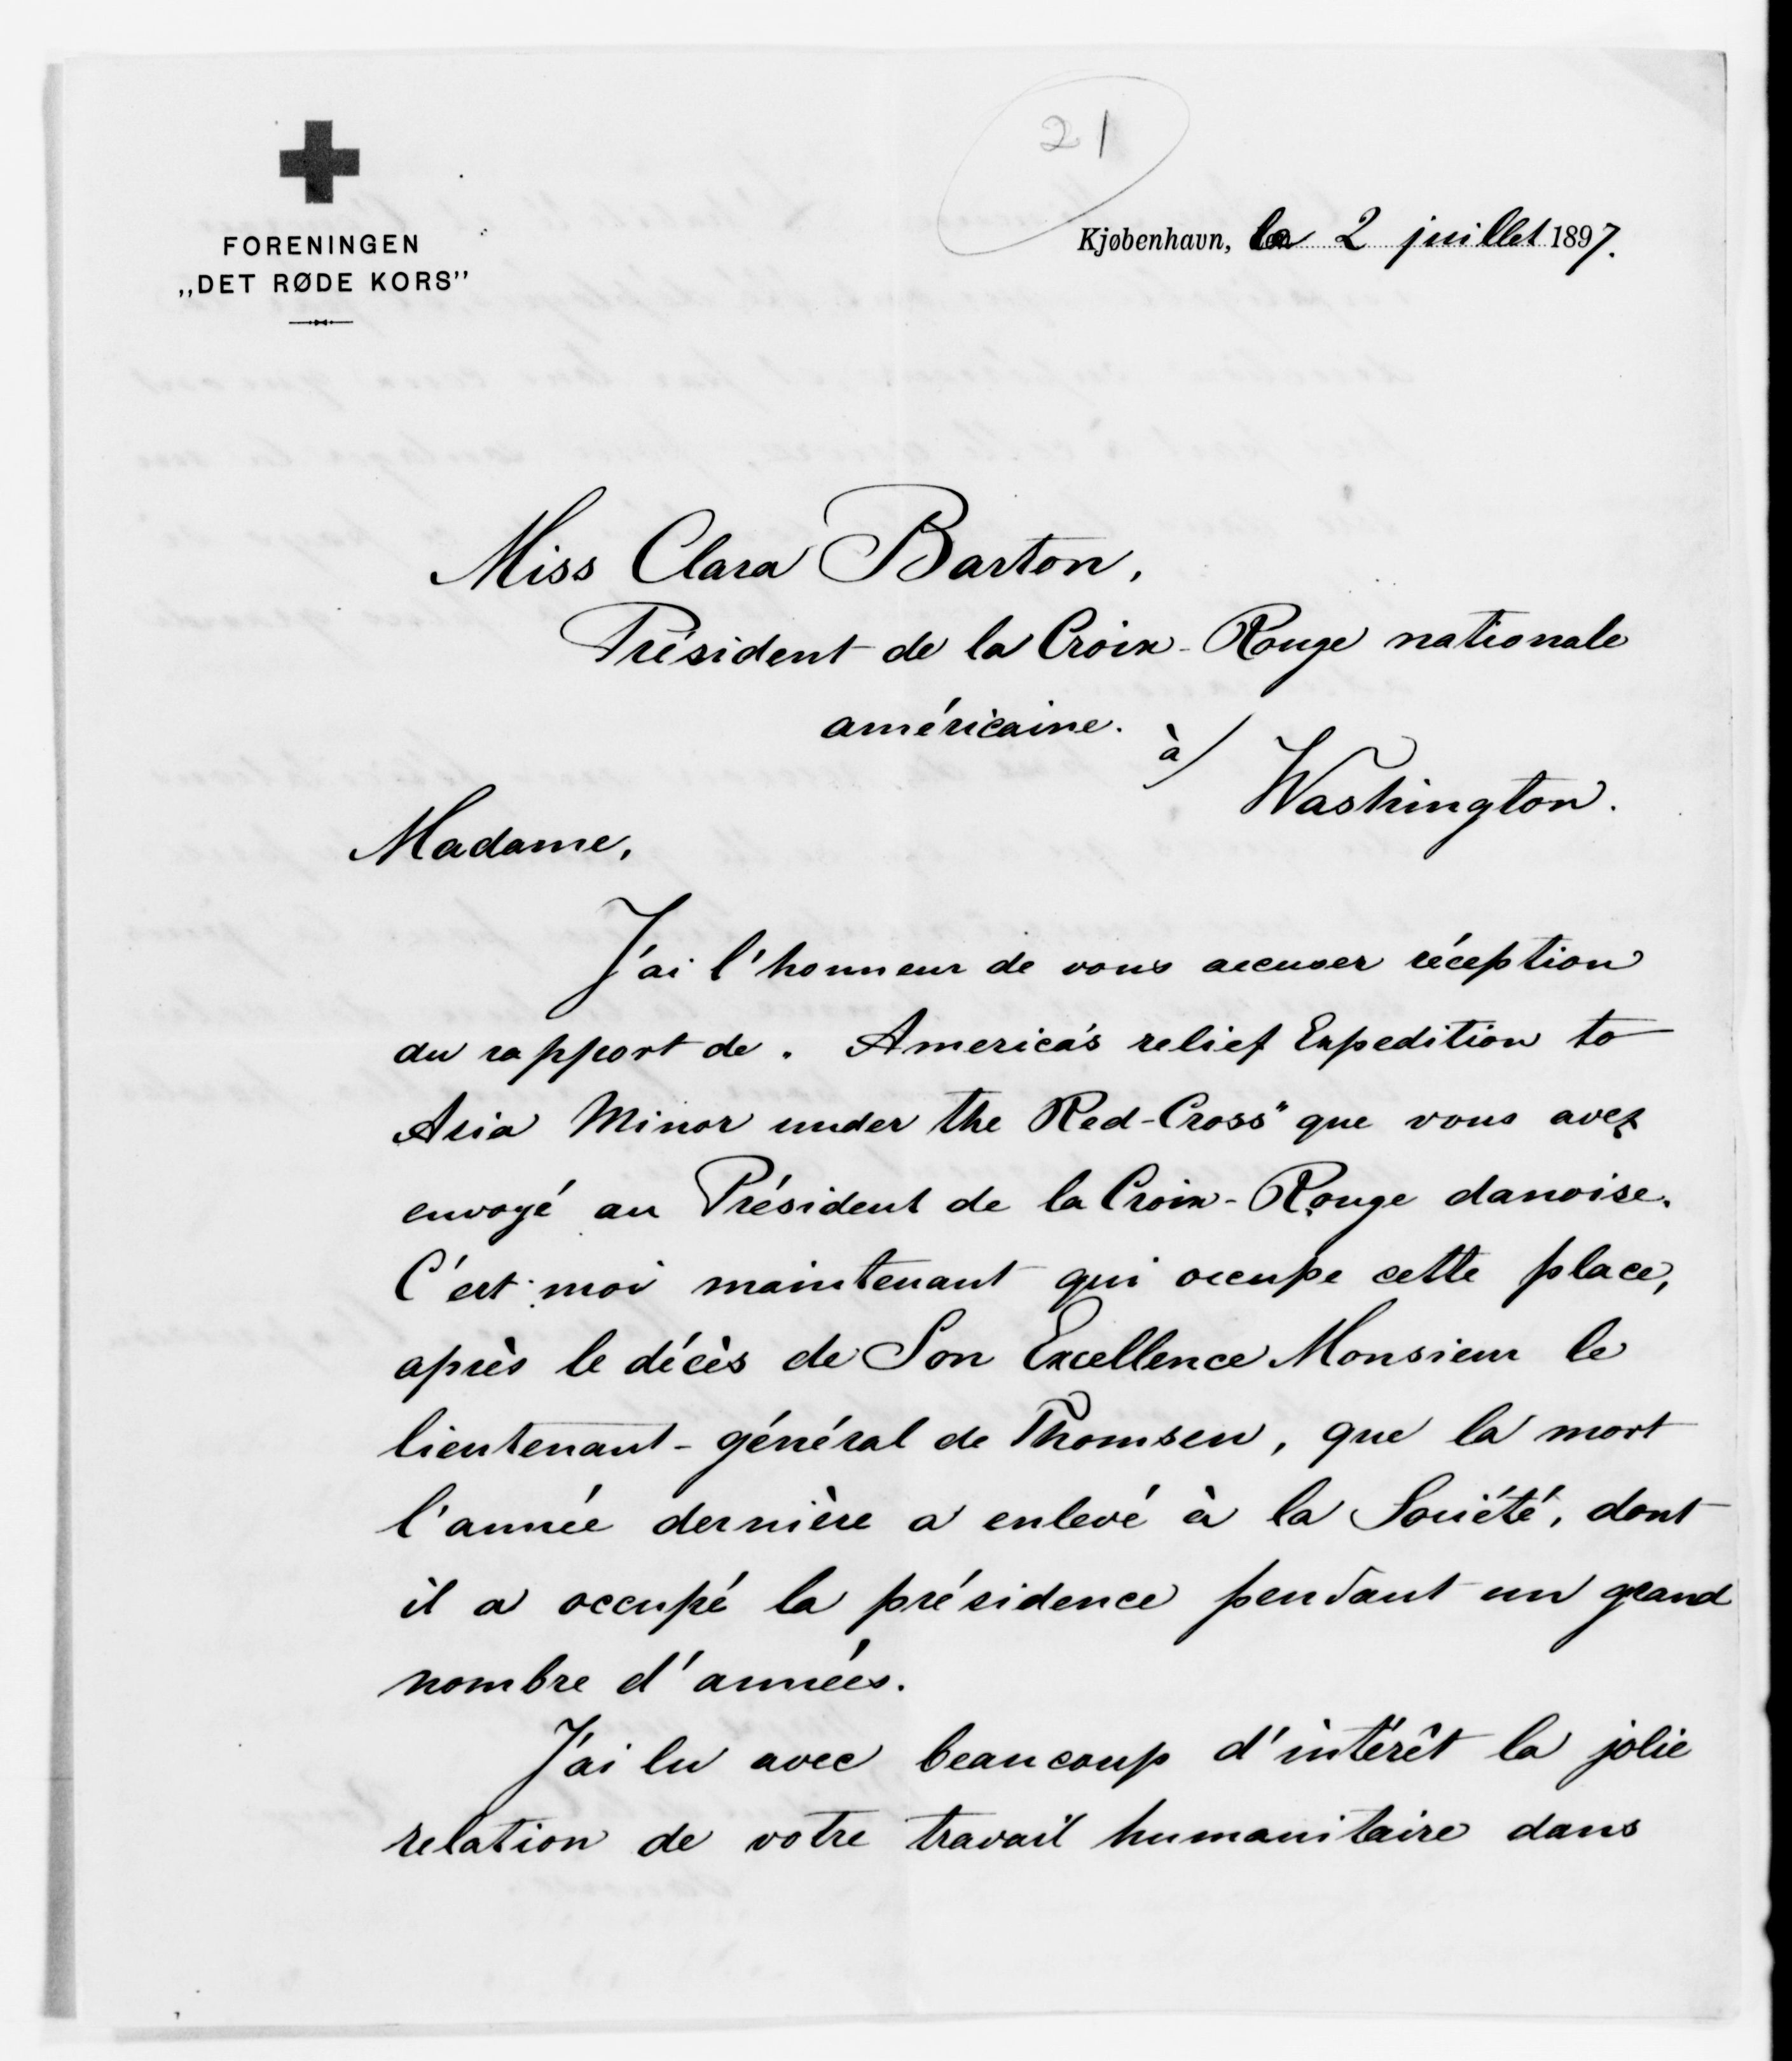 21
FORENINGEN
„DET RØDE KORS”
Kjøbenhavn, le 2 juillet 1897.
Miss Clara Barton,
Président de la Croix-Rouge nationale
américaine.
à/
Washington.
Madame,
J'ai l'honneur de vous accuser réception
du rapport de „America's relief Expedition to
Asia Minor under the Red-Cross" que vous avez
envoyé au Président de la Croix-Rouge danoise.
C'est moi maintenant qui occupe cette place,
après le décès de Son Excellence Monsieur le
lieutenant-général de Thomsen, que la mort
l'année dernière a enlevé à la Société, dont
il a occupé la présidence pendant un grand
nombre d'années.
J'ai lu avec beaucoup d'intérêt la jolie
relation de votre travail humanitaire dans